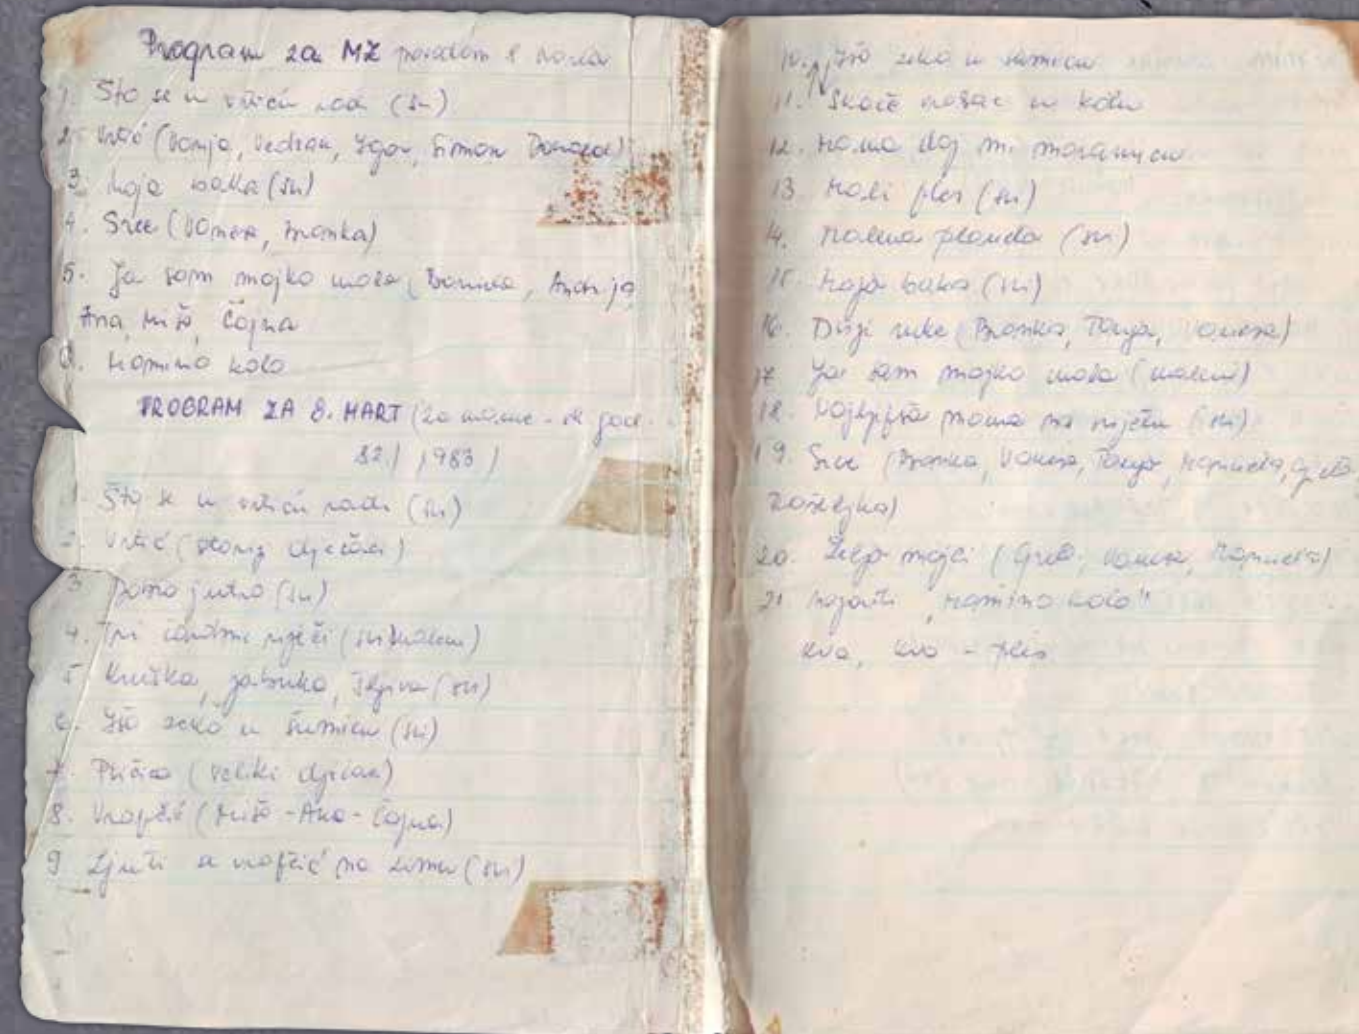 Program za MZ povodom 8 marta
1. Što se u vrtiću radi (svi)
2. Vrtić (Vanja, Vedran, Igor, Simon
3. Moja baka (svi)
4. Srce (Vanesa, Bronka)
5. Ja sam majko mala, Andrija
Ana, Mišo, Čojna
6. Mamino kolo
PROGRAM ZA 8. MART (za mame - šk. god.
82/1983/
1. Što se u vrtiću radi (svi)
2. Vrtić (stariji dječaci)
3 Dobro jutro (svi)
4. Tri čarobne riječi (svi
5 Kruška, jabuka, šljiva (svi)
6. Išo zeko u šumicu (svi)
7. Pričica (veliki dječaci)
8. Vrapčić (Mišo - Ana - Čojna)
9 Ljuti se vrapčić na zimu (svi)
10. Išo zeko u šumicu
11. Skače vrabac u kolu
12. Mama daj mi maramicu
13. Mali ples (svi)
14. Mamina pjesmica (svi)
15 Moja baka (svi)
16. Digi ruke (Bronka, Tanja, Vanesa)
17 Ja sam majko mala (maleni)
18. Najljepša mama na svijetu (svi)
19. Srce (Bronka, Vanesa, Tanja, Marijeta,
20. Želja majci (Vanesa, Marijeta)
21 Najaviti "Mamino kolo"
kva, kva - ples